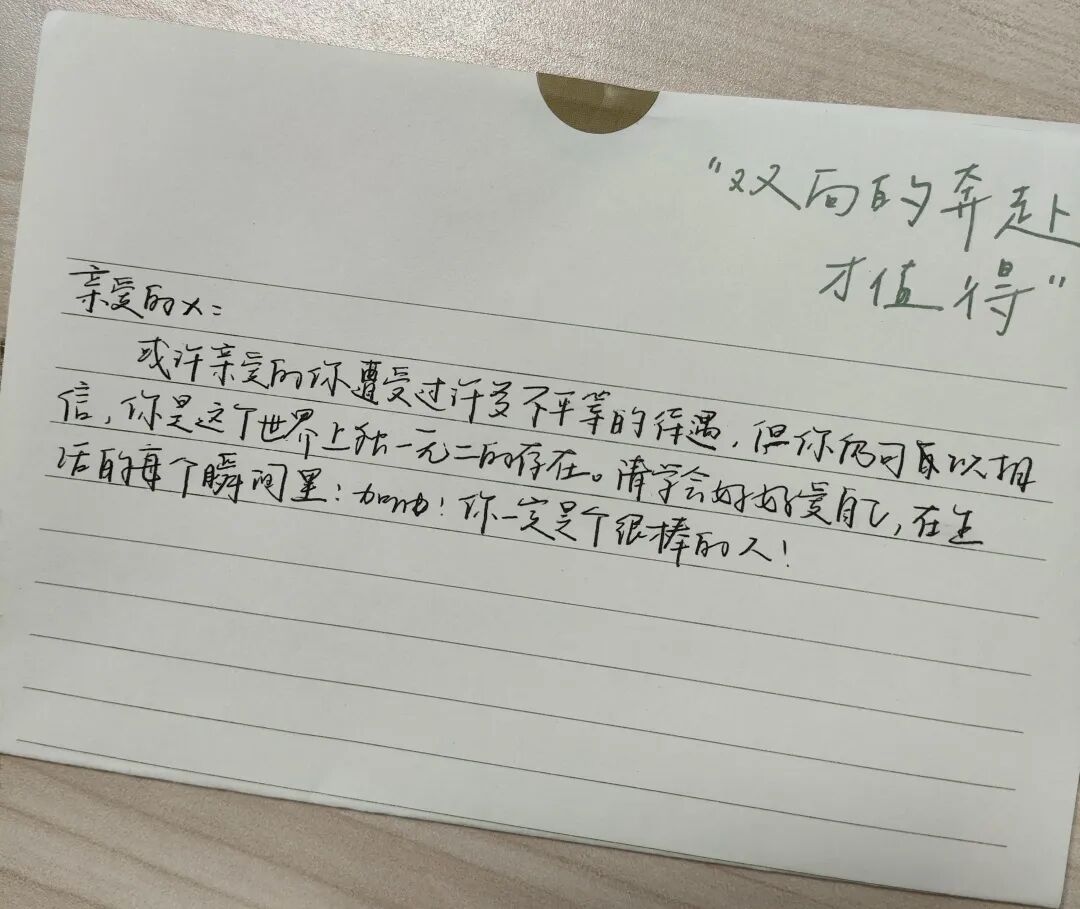 "双向的奔赴
才值得"
亲爱的X：
或许亲爱的你遭受过许多不平等的待遇，但你仍可以相
信，你是这个世界上独一无二的存在。请学会好好爱自己，在生
活的每个瞬间里：加油！你一定是个很棒的人！